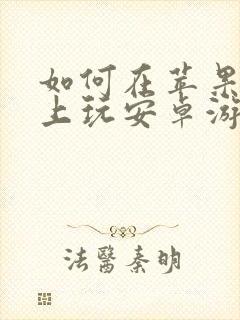 如何在苹果
上玩安卓游
法醫秦明